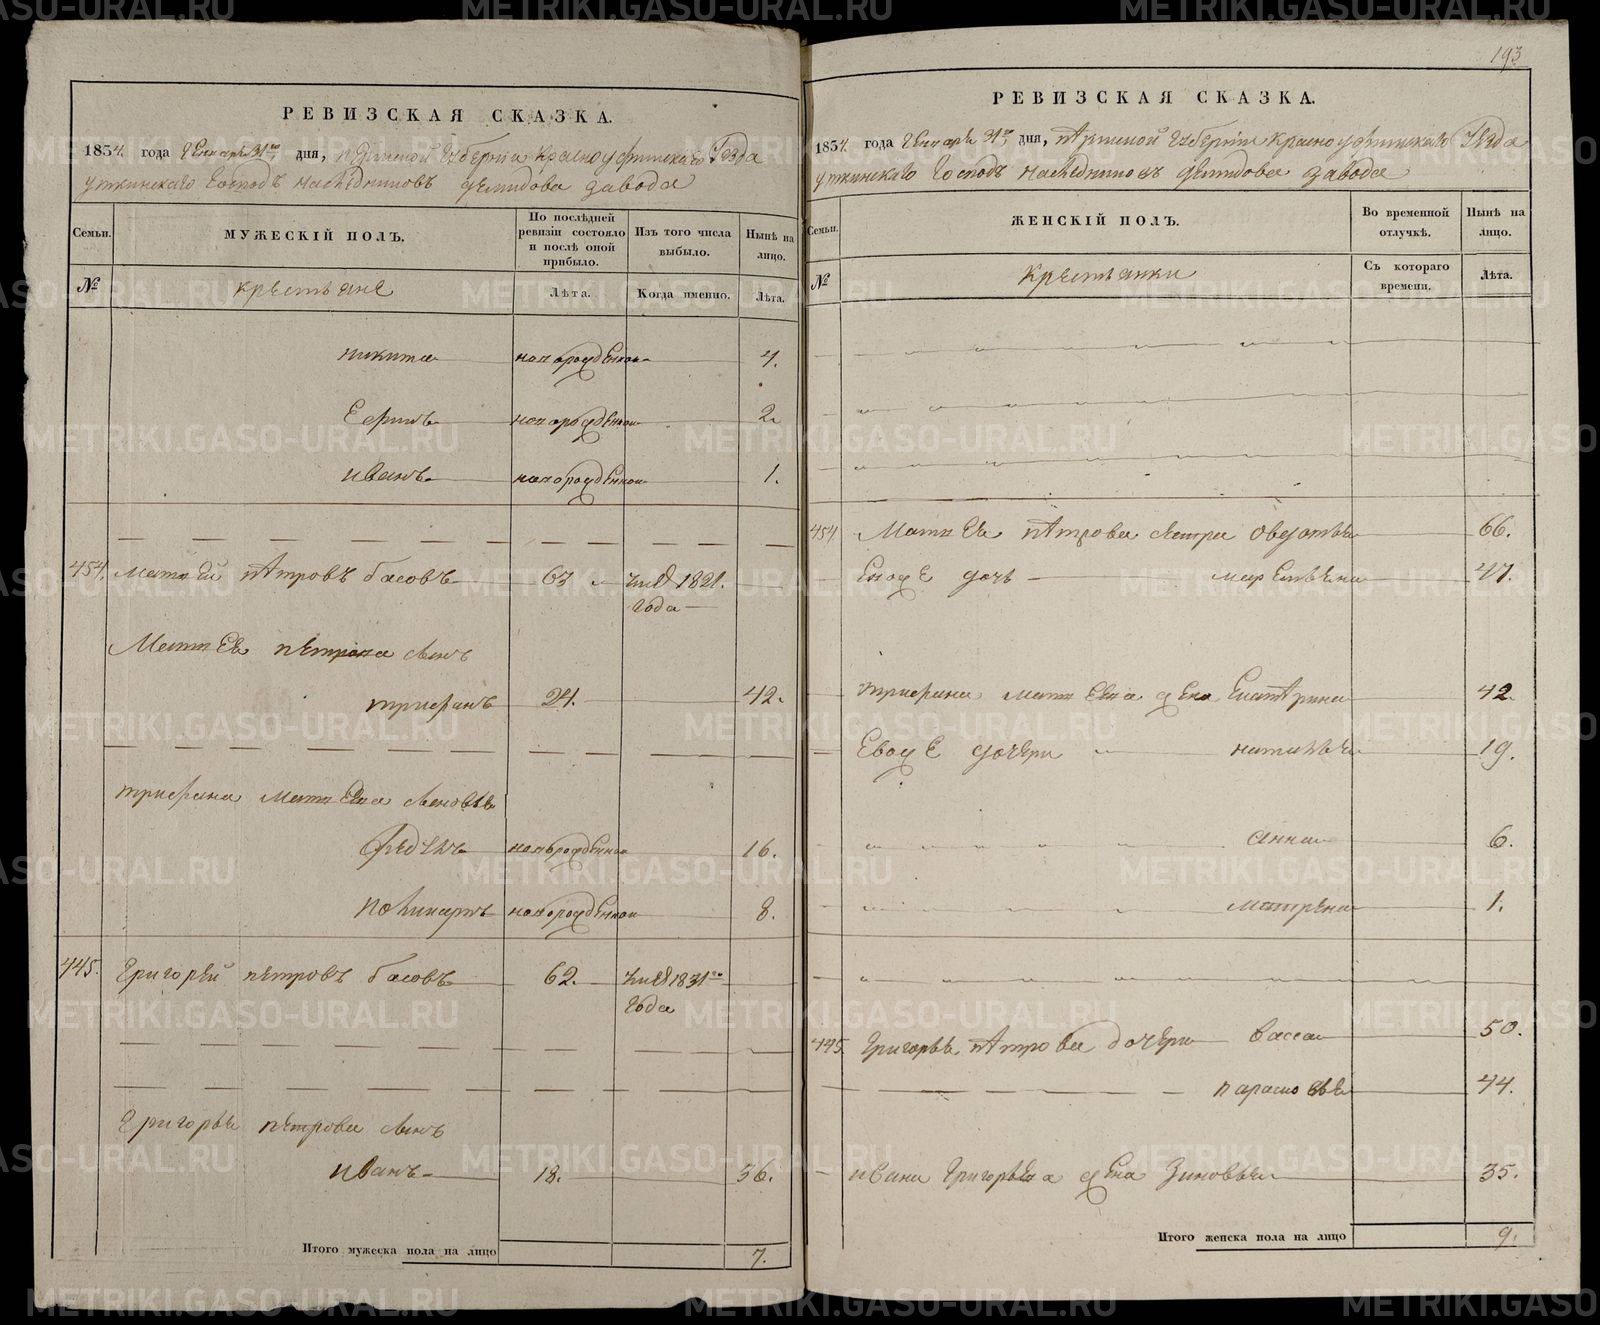 193
РЕВИЗСКАЯ СКАЗКА.
1834 года Генваря 31го дня, Пермской Губернии Красноуфимскаго Уезда
уткинскаго Господъ наследниковъ демидова завода
Семьи.
МУЖЕСКІЙ ПОЛЪ.
По послѣдней ревизіи состояло и послѣ оной прибыло.
Изъ того числа выбыло.
Нынѣ на лицо.
№
крестьяне
Лѣта.
Когда именно.
Лѣта.
никита новорожденной 4.
Ефимъ новорожденной 2.
иванъ новорожденной 1.
454. Матвей петровъ басовъ 63 1821. года
Матвея петрова сынъ
трифанъ 21. 42.
трифана матвеева сыновья
новорожденной 16.
поликарпъ новорожденной 8.
445. григорей петровъ басовъ 62. 1831го года
григорья петрова сынъ
иванъ 18. 36.
Итого мужеска пола на лицо 7.
РЕВИЗСКАЯ СКАЗКА.
1834 года Генваря 31го дня, пермской Губернии Красноуфимскаго Уезда
уткинскаго Господъ наследниковъ демидова завода
Семьи.
ЖЕНСКІЙ ПОЛЪ.
Во временной отлучкѣ.
Нынѣ на лицо.
№
крестьянки
Съ котораго времени.
Лѣта.
454 Матвея петрова сестра 66.
дочь 47.
трифана матвеева жена Екатерина 42.
Евоже дочери наталья 19.
анна 6.
матрена 1.
445. григорья петрова дочери васса 50.
парасковья 44.
ивана григорьева жена Зиновья 35.
Итого женска пола на лицо 9.
METRIKI.GASO-URAL.RU